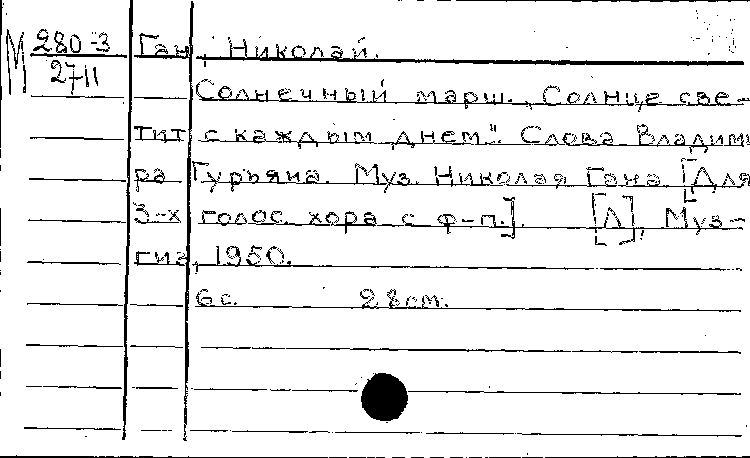 М 280-3 Ган, Николай.
27 11
Солнечный марш. „Солнце све-
тит с каждым днем". Слова Владими
ра Гурьяна. Муз. Николая Гана. [Для
3-х голос. хора с ф-п.]. [Л], Муз-
гиз, 1950.
6 с. 28 см.